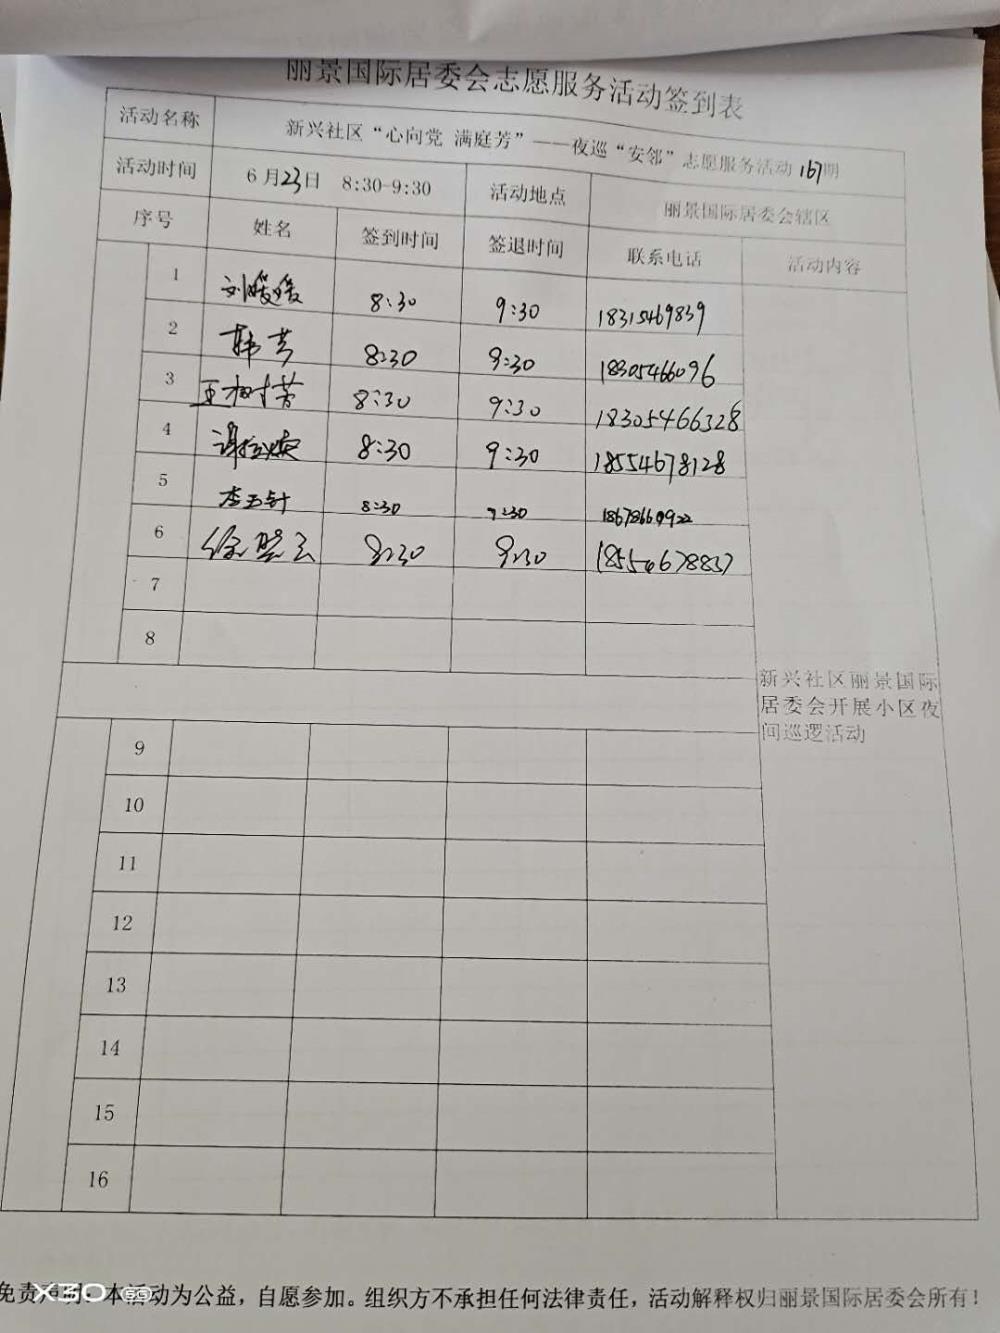 丽景国际居委会志愿服务活动签到表
活动名称 新兴社区“心向党 满庭芳”——夜巡“安邻”志愿服务活动167期
活动时间 6月23日 8:30-9:30 活动地点 丽景国际居委会辖区
序号 姓名 签到时间 签退时间 联系电话 活动内容
1 刘媛媛 8:30 9:30 18315469839
2 韩芳 8:30 9:30 18305466096
3 王树芳 8:30 9:30 18305466328
4 8:30 9:30 18554678128
5 李玉针 8:30 9:30
6 徐 云 8:30 9:30 18554678837
7
8
新兴社区丽景国际
居委会开展小区夜
间巡逻活动
9
10
11
12
13
14
15
16
免责声明：本活动为公益，自愿参加。组织方不承担任何法律责任，活动解释权归丽景国际居委会所有！
X30 5G